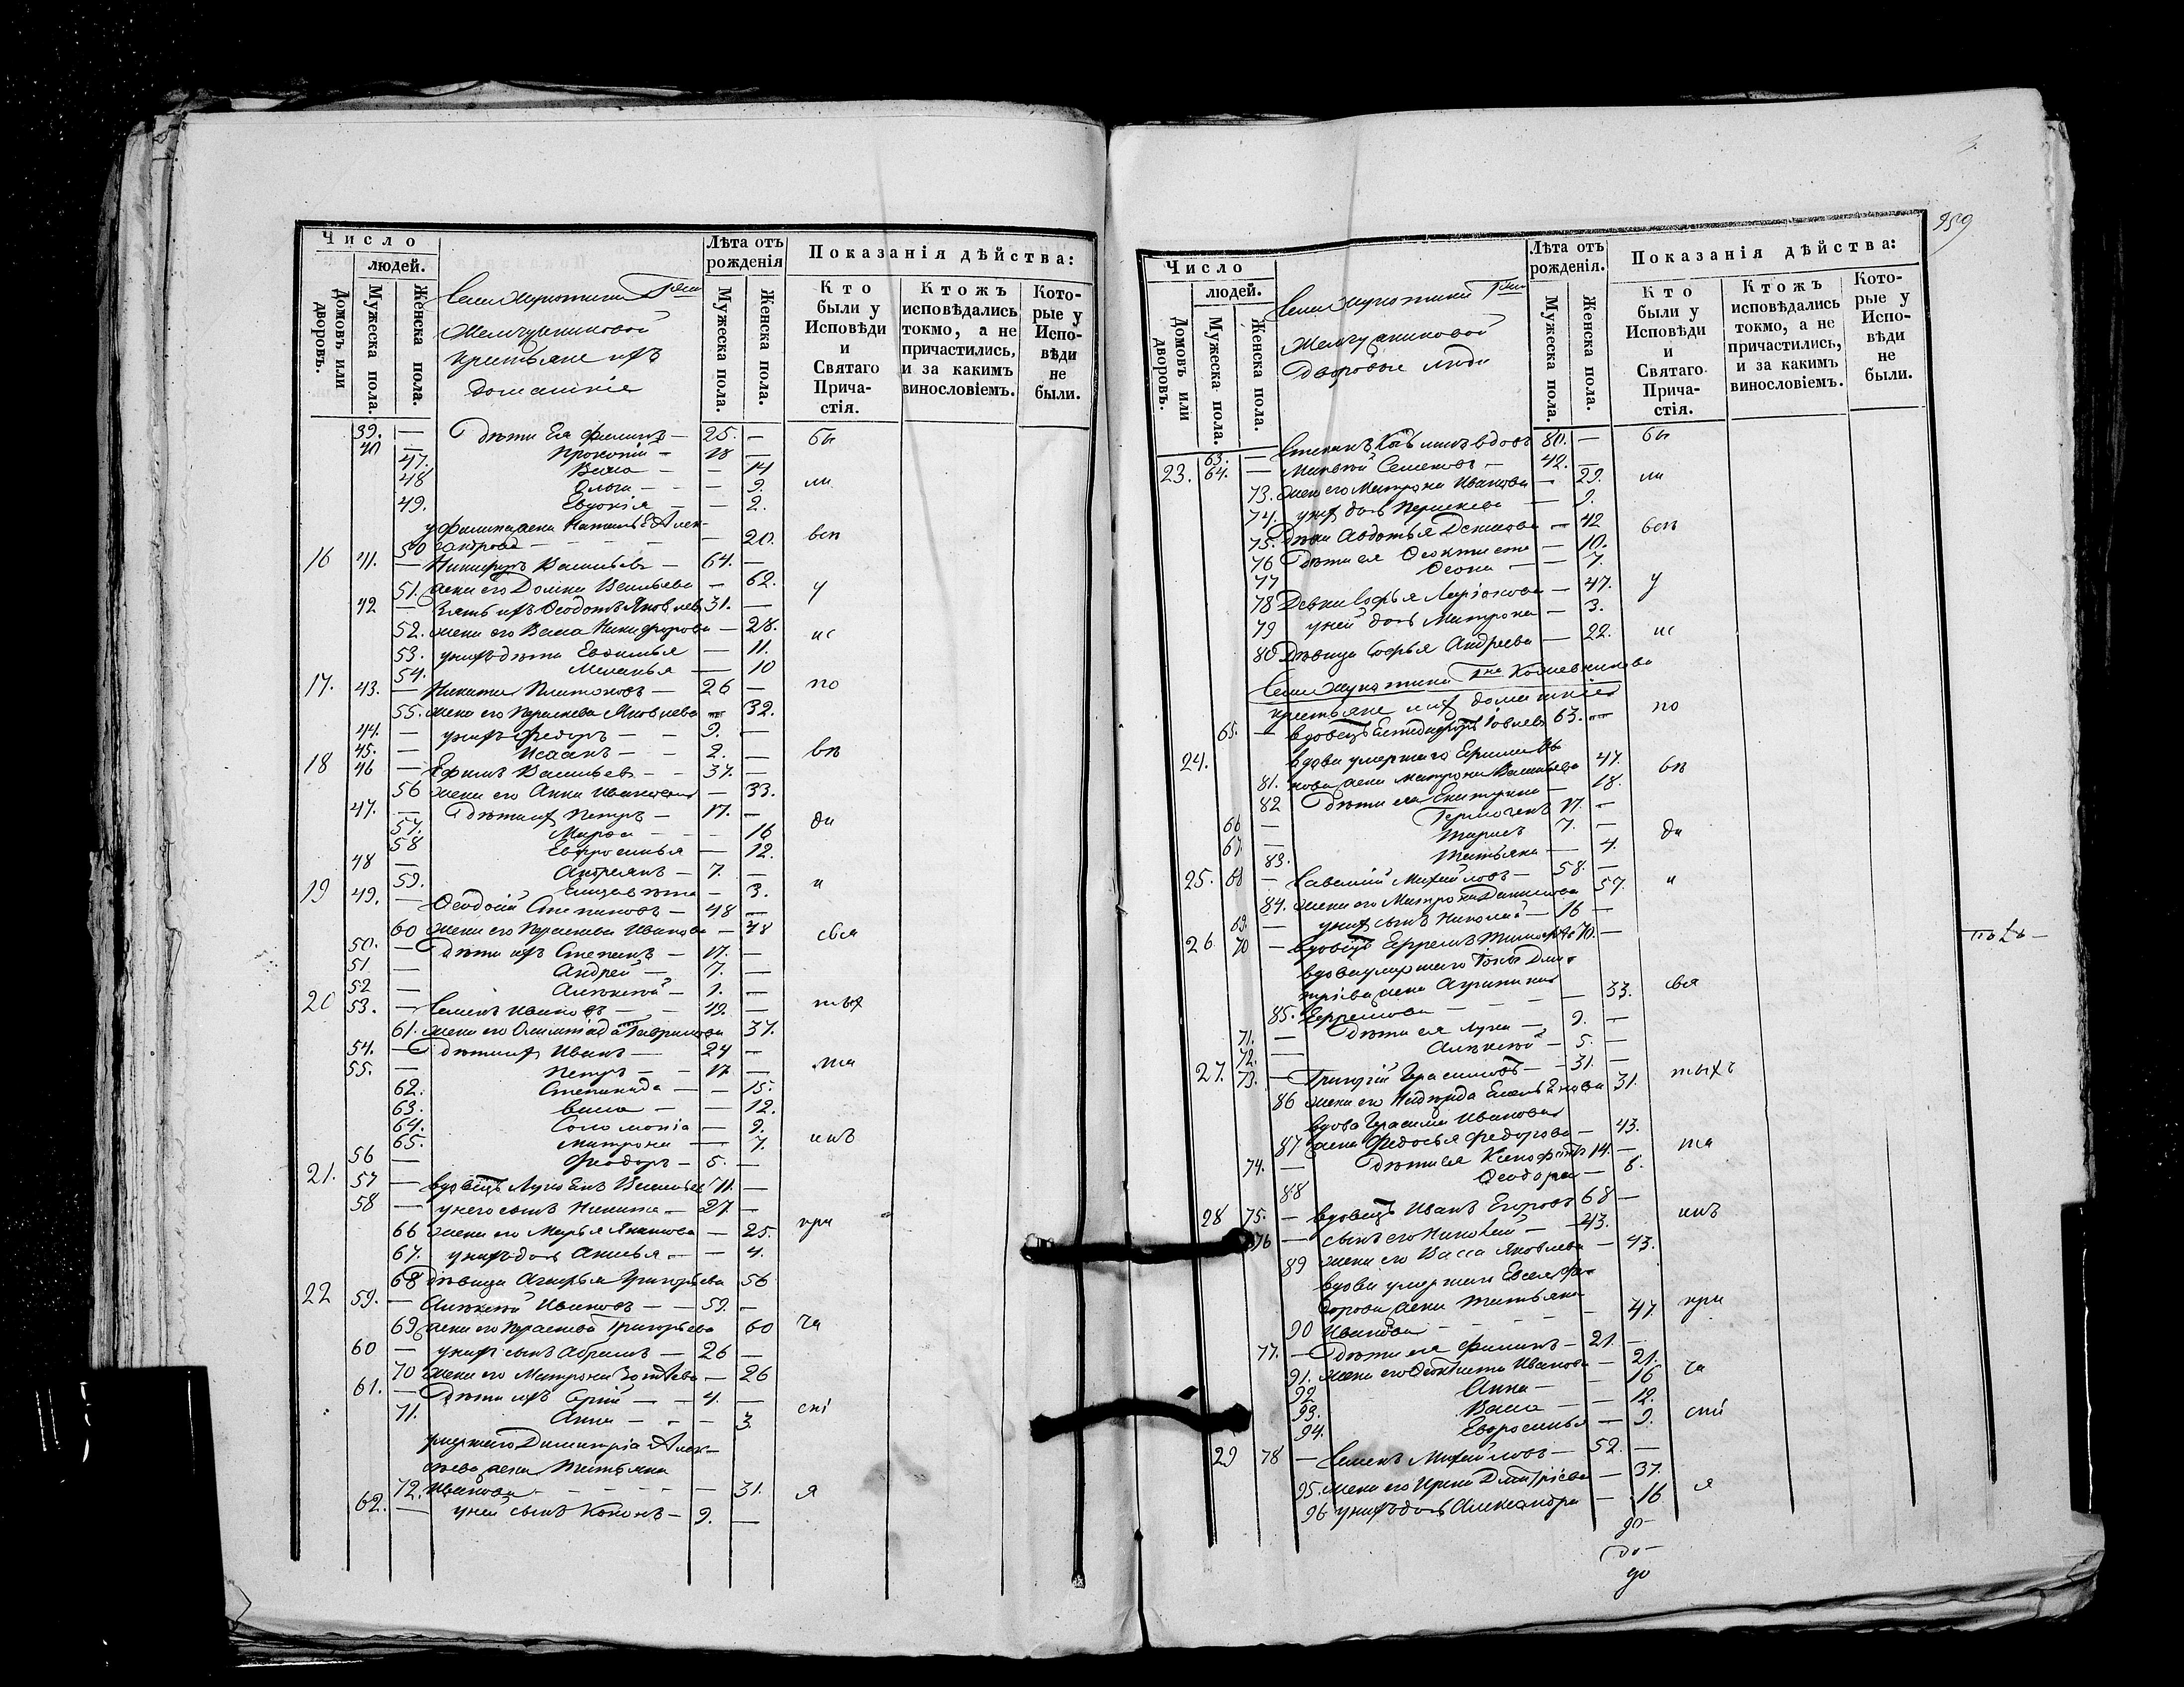 Число
людей.
Домовъ или дворовъ.
Мужеска пола.
Женска пола.
Жемчужниковой
крестьяне ихъ
домашніе
Лѣта отъ рожденія
Мужеска пола.
Женска пола.
Показанія дѣйства:
Кто были у Исповѣди и Святаго Прича-стія.
Ктожъ исповѣдались токмо, а не причастились, и за какимъ винословіемъ.
Кото-рые у Испо-вѣди не были.
39. — Дѣти Ея Филипъ — 25. — бы
40 — Прокопій — 18 —
47. Васса — — 14
48 Ольга — — 9. ли
49. Евдокія — — 2.
у Филипа жена Наталья Алек-
50 сандрова — 20. всѣ
16 41. — Никифоръ Васильевъ — 64. —
51. жена его Домна Васильева — 62. у
42 — Зять ихъ Ѳеодотъ Яковлевъ 31. —
52. жена его Васса Никифорова — 28. ис
53. у нихъ дѣти Евфимья — 11.
54. Меланья — 10
17. 43. — Никита Платоновъ — 26 — по
55. жена его Параскева Яковлева — 32.
44. — у нихъ Федоръ — 9. —
45. — Исаакъ — 2. — вѣ
18 46 — Ефимъ Васильевъ — 37. —
56 жена его Анна Иванова — 33.
47. — Дѣти их Петръ — 17. — ди
57. Марѳа — — 16
58 Евфросинья — 12.
48 — Андреянъ — 7. —
59. Елизавѣта — 3. и
19 49. — Ѳеодосій Степановъ — 48 —
60 жена его Параскева Иванова — 48 свя
50. — Дѣти ихъ Степанъ — 17. —
51 — Андрей — 7. —
52 — Алексѣй — 1. —
20 53. — Семенъ Ивановъ — 42. — тых
61. жена его Олимпіада Гаврилова 37.
54. — Дѣти их Иванъ — 24 —
55. — Петръ — 17 — та
62. Степанида — — 15.
63. Васса — — 12.
64. Соломонія — 9.
65. Матрона — 7. инъ
56 — Ѳеодоръ — 5. —
21. 57 — вдовецъ Лукоянъ Васильевъ 71. —
58 — у него сынъ Никита — 27 —
66 жена его Марья Акимова — 25. при
67. у нихъ доч. Анисья — — 4.
68 дѣвица Агафья Григорьева 56
22 59. — Алексѣй Ивановъ — 59. —
69. жена его Параскева Григорьева 60 ча
60 — у них сынъ Абрамъ — 26 —
70 жена его Матрона Зотѣева — 26
61. — Дѣти ихъ Сергій — 4. —
71. Анна — — 3. сті
умершаго Димитрія Алек-
сѣева жена Татьяна
72. Иванова — 31. я
62. — у ней сынъ Кононъ — 9. —
959
Число
людей.
Домовъ или дворовъ.
Мужеска пола.
Женска пола.
Жемчужниковой
дворовые люди
Лѣта отъ рожденія.
Мужеска пола.
Женска пола.
Показанія дѣйства:
Кто были у Исповѣди и Святаго Прича-стія.
Ктожъ исповѣдались токмо, а не причастились, и за какимъ винословіемъ.
Кото-рые у Испо-вѣди не были.
63. — Степанъ Козьминъ вдовъ 80. — бы
23. 64. — Семеновъ — 42. —
73. жена его Матрона Иванова — 29. ли
74. у них доч. Параскева — 9.
75. Дѣвка Авдотья Денисова — 42 всѣ
76 Дѣти ея Ѳеоктиста — 10.
77 — 7.
78 Девка Софья Ларіонова — 47. у
79 у ней доч. Матрона — 3.
80 Дѣвица Софья Андреева — 22. ис
Гна Кожевникова
крестьяне их домашніе
65. — вдовецъ 63. — по
24. вдова умершаго
81. жена Матрона Васильева 47. вѣ
82 Дѣти ея Екатерина — 18.
66 — Гермогенъ 17. —
67. — 7. — ди
83. Татьяна — 4.
25. 68 — Савелій Михайловъ — 58. —
84. жена его Матрона Данилова 57. и
69. — у них сынъ Николай — 16 —
26 70 — вдовецъ Ефремъ 70. —
вдова умершаго Дми-
тріева жена Агрипина
85. Ефремова — 33. свя
71. — Дѣти ея Лука — 9. —
72. — Алексѣй — 5. —
27. 73. — Григорій Герасимовъ — 31. —
86 жена его Надежда Емельянова 31. тыхъ
вдова Герасима Иванова
87 жена Федосья Федорова — 43.
74. — Дѣти ея Ксенофонтъ 14. — та
88 Ѳеодора — 8.
28 75. — вдовецъ Иванъ Егоровъ 68 —
76 — сынъ его Николай — 43. инъ
89 жена его Васса Яковлева — 43.
вдова умершаго Евсея Фе-
дорова жена Татьяна
90 Иванова — 47 при
77. — Дѣти ея Филипъ — 21. —
91. жена его Ѳеоктиста Иванова — 21.
92 Анна — — 16 ча
93. Васса — — 12.
94. Евфросинья — 9. стi
29 78 — Семенъ Михайловъ — 52. —
95. жена его Ирина Дмитріева — 37.
96 у нихъ доч Александра — 16 я